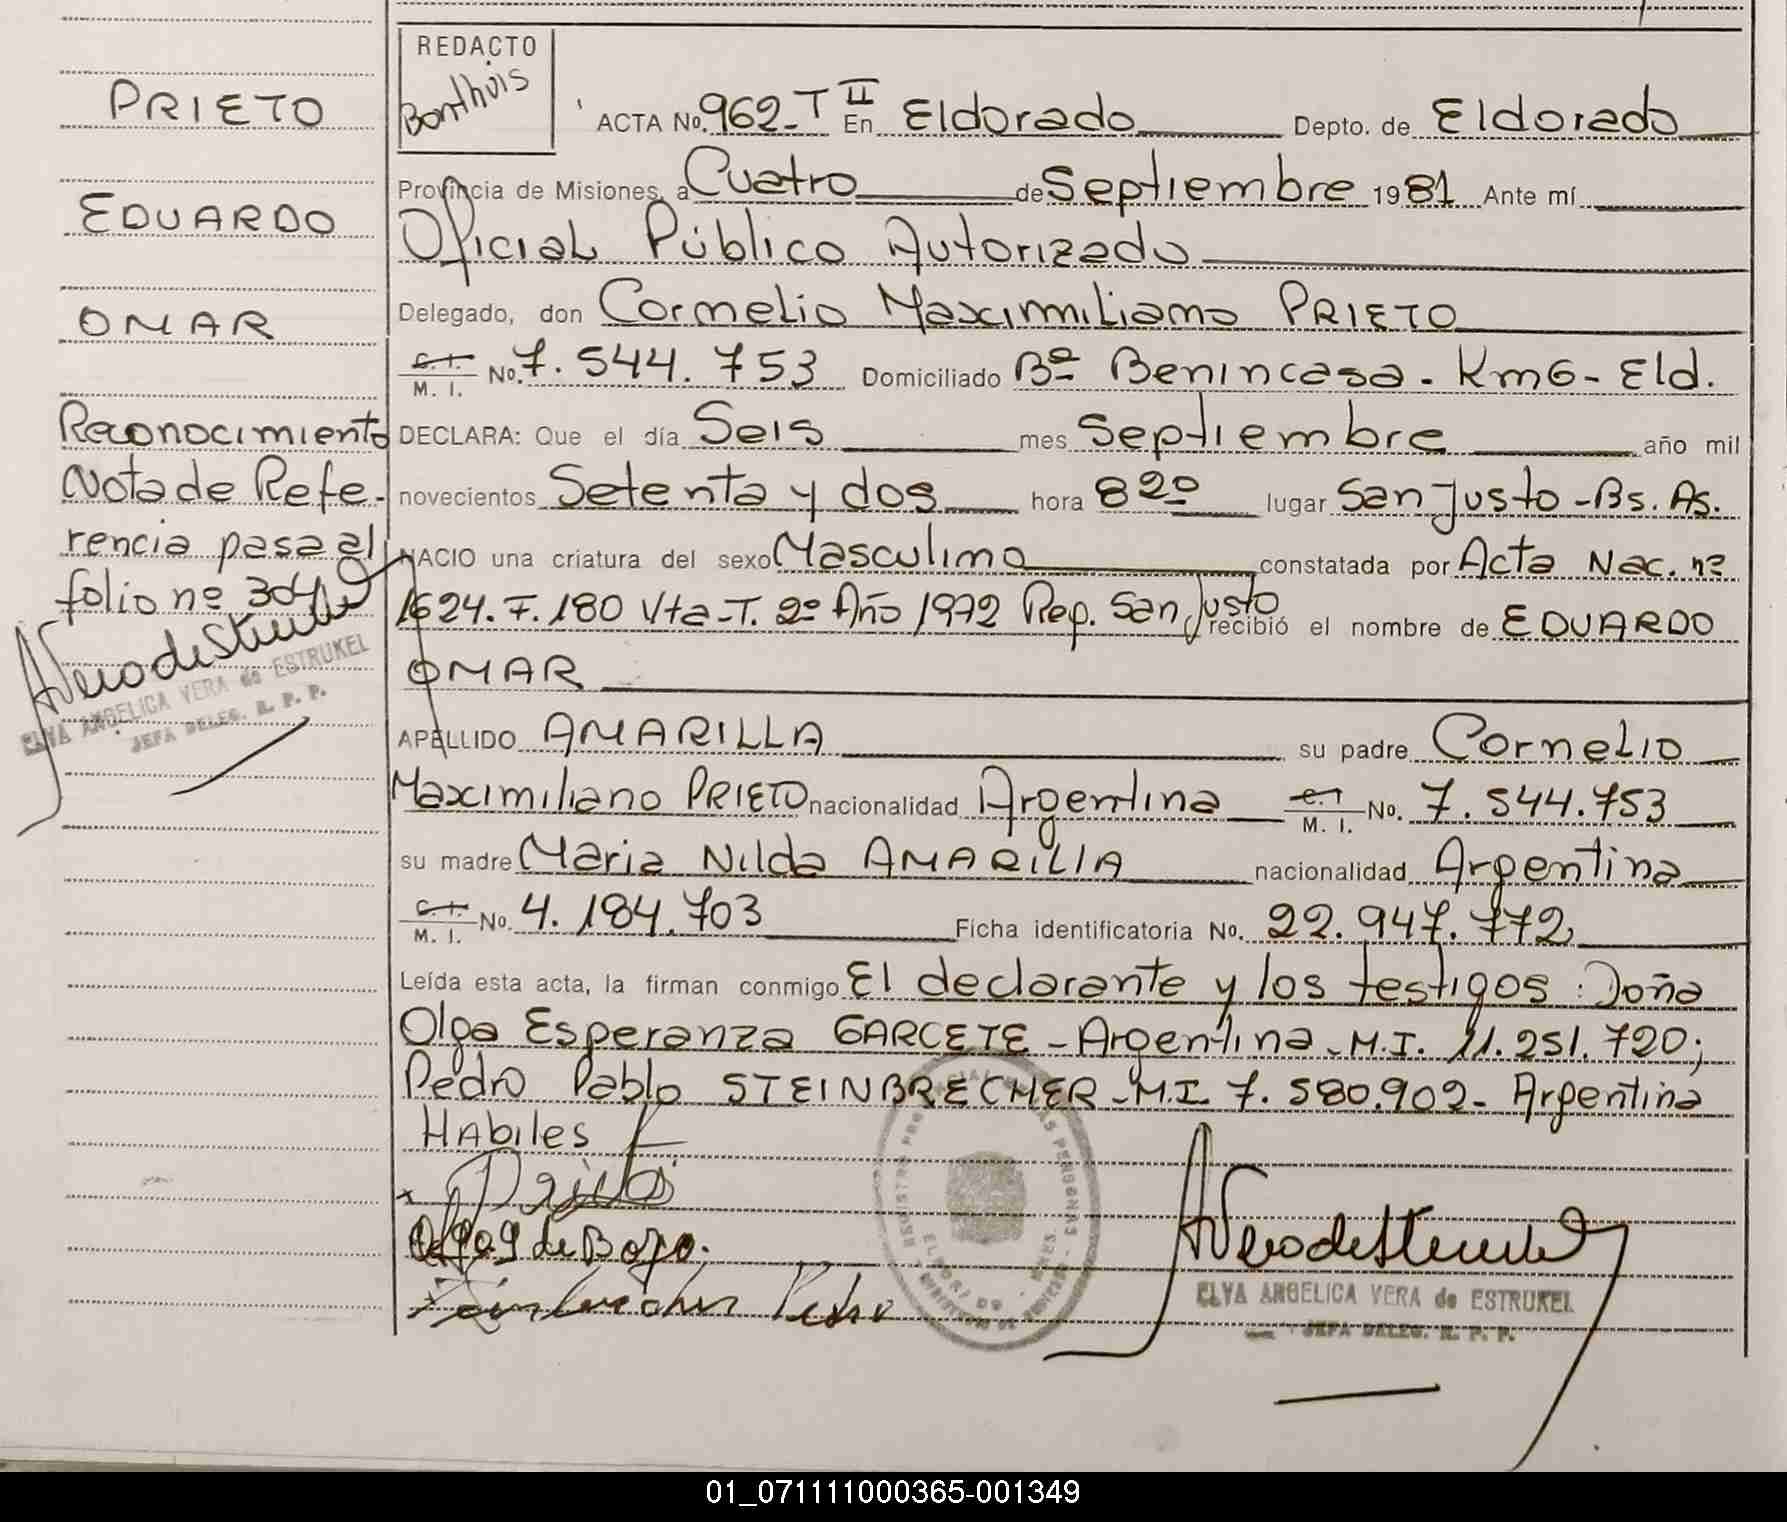 PRIETO
EDUARDO
OMAR
Reconocimiento
Nota de Refe-
rencia pasa al
folio nº 304
ELVA ANGELICA VERA de ESTRUKEL
JEFA DELEG. R. P. P.
REDACTO
Bonthuis
ACTA No. 962-T II En Eldorado Depto. de Eldorado
Provincia de Misiones, a Cuatro de Septiembre 1981 Ante mí
Oficial Público Autorizado
Delegado, don Cornelio Maximiliano PRIETO
C. I. M. I. No. 7.544.753 Domiciliado Bº Benincasa - Km6 - Eld.
DECLARA: Que el día Seis mes Septiembre año mil
novecientos Setenta y dos hora 8 20 lugar San Justo - Bs. As.
NACIO una criatura del sexo Masculino constatada por Acta Nac. nº
1624. F. 180 Vta - T. 2º Año 1972 Rep. San Justo recibió el nombre de EDUARDO
OMAR
APELLIDO AMARILLA su padre Cornelio
Maximiliano PRIETO nacionalidad Argentina C. I. M. I. No. 7.544.753
su madre Maria Nilda AMARILLA nacionalidad Argentina
C. I. M. I. No. 4.184.703 Ficha identificatoria No. 22.947.772
Leída esta acta, la firman conmigo El declarante y los testigos: Doña
Olga Esperanza GARCETE - Argentina - M.I. 11.251.720;
Pedro Pablo STEINBRECHER - M.I. 7.580.902 - Argentina
Habiles
de Bozo.
Steinbrecher Pedro
ELVA ANGELICA VERA de ESTRUKEL
JEFA DELEG. R. P. P.
01_071111000365-001349